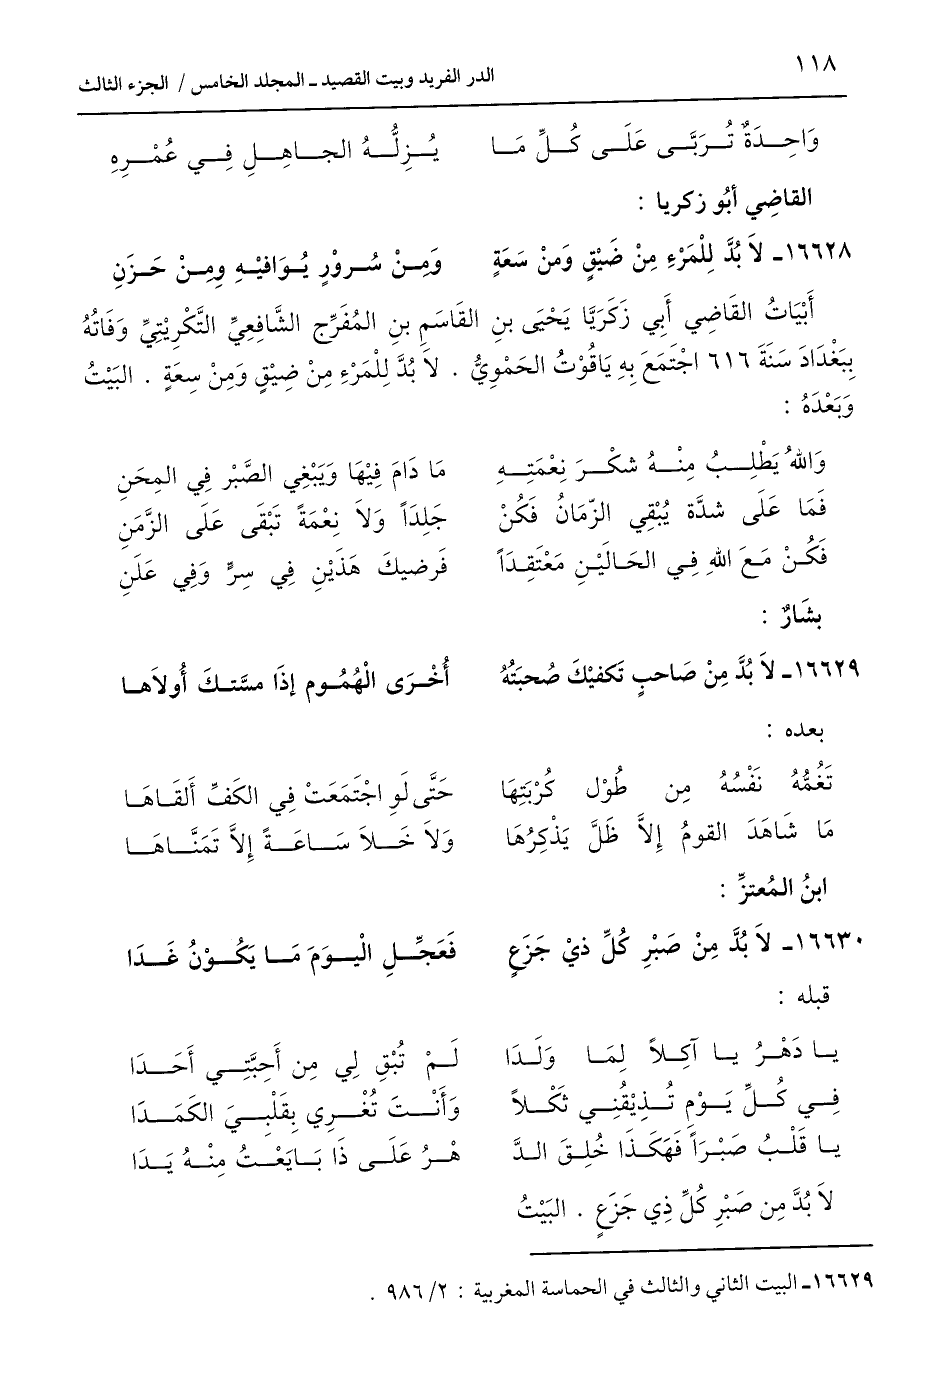 ١١٨
الدر الفريد وبيت القصيد ـ المجلد الخامس / الجزء الثالث
وَاحِــدَةٌ تُــرَبَّــى عَلَــى كُــلِّ مَــا يُــزِلُّــهُ الجــاهِــلِ فِــي عُمْــرِهِ
القاضِي أبُو زكريا :
١٦٦٢٨ـ لاَ بُدَّ لِلْمَرْءِ مِنْ ضَيْقٍ وَمنْ سَعَةٍ وَمِــنْ سُــرورٍ يُــوَافِيْــهِ ومِــنْ حَــزَنِ
أَبْيَاتُ القَاضِي أبي زَكَرِيَّا يَحْيَى بنِ القَاسَمِ بنِ المُفَرِّج الشَّافعِيِّ التَّكْرِيْتِيِّ وَفَاتُهُ
بِبَغْدَادَ سَنَةَ ٦١٦ اجْتَمَعَ بِهِ يَاقُوْتُ الحَمْوِيُّ . لاَ بُدَّ لِلْمَرْءِ مِنْ ضِيْقٍ وَمِنْ سِعَةٍ . البَيْتُ
وَبَعْدَهُ :
وَاللهُ يَطْلِــبُ مِنْــهُ شكْــرَ نِعْمَتِــهِ مَا دَامَ فِيْهَا وَيَبْغِي الصَّبْر فِي المِحَنِ
فَمَا عَلَى شدَّة يُبْقِي الزّمَانُ فَكُنْ جَلِدَاً وَلاَ نِعْمَةً تَبْقَى عَلَى الزَّمَنِ
فَكُــنْ مَــعَ اللهِ فِــي الحَـاليْـنِ مَعْتَقِـدَاً فَرضيكَ هَذَيْنِ فِي سِرٍّ وَفِي عَلَنِ
بشَارٌ :
١٦٦٢٩ـ لاَ بُدَّ مِنْ صَاحبٍ تَكفيْكَ صُحبَتُهُ أُخْـرَى الْهُمُـومِ إذَا مسَّتـكَ أُولاَهـا
بعده :
تَغُمُّهُ نَفْسُهُ مِن طُوْل كُرْبَتِهَا حَتَّى لَو اجْتَمَعَتْ فِي الكَفِّ أَلقَـاهَـا
مَا شَاهَدَ القومُ إلاَّ ظَلَّ يَذْكِرُهَا وَلاَ خَــلاَ سَــاعَــةً إلاَّ تَمَنَّــاهَــا
ابنُ المُعتزِّ :
١٦٦٣٠ـ لاَ بُدَّ مِنْ صَبْرِ كُلِّ ذيْ جَزَعٍ فَعَجِّــلِ الْيــومَ مَــا يَكُــوْنُ غَــدَا
قبله :
يــا دَهْــرُ يــا آكِــلاً لِمَــا وَلَــدَا لَــمْ تُبْقِ لِي مِن أَحِبَّتِــي أَحَــدَا
فِــي كُــلِّ يَــوْمٍ تُــذِيقُنِــي ثكْــلاً وَأَنْــتَ تُغْــرِي بِقَلْبِــيَ الكَمَــدَا
يــا قَلْــبُ صَبْــرَاً فَهكَــذَا خُلِــقَ الــدَّ هْــرُ عَلَــى ذَا بَــايَعْــتُ مِنْــهُ يَــدَا
لاَ بُدَّ مِن صَبْرِ كُلِّ ذِي جَزَعٍ . البَيْتُ
١٦٦٢٩ـ البيت الثاني والثالث في الحماسة المغربية : ٢/ ٩٨٦ .